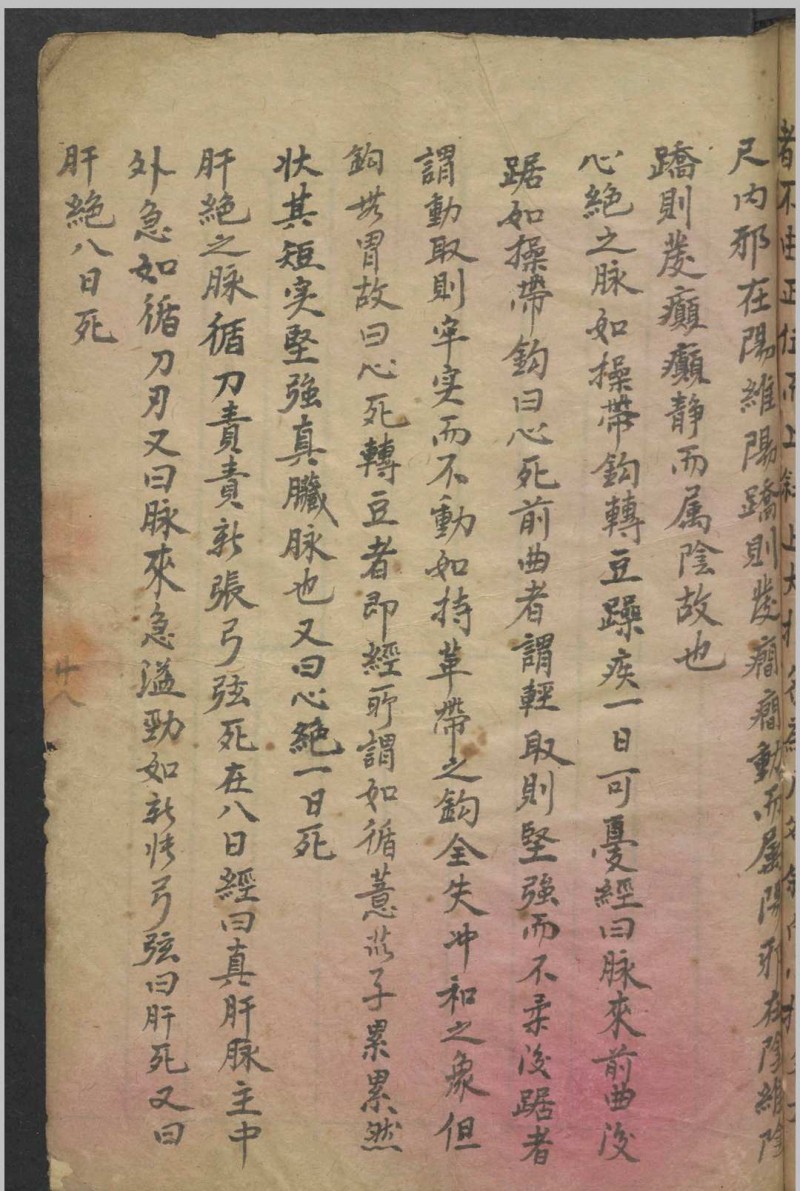 者不由正位而上斜上大指
尺内邪在陽維陽蹻則發癇癇動而属陽邪在陰維陰
蹻則發癲癲静而属陰故也
心絶之脉如操帶鈎轉豆躁疾一日可憂經曰脉來前曲後
踞如操帶鈎曰心死前曲者謂輕取則堅強而不柔後踞者
謂動取則牢实而不動如持革帶之鈎全失冲和之象但
鈎無胃故曰心死轉豆者即經所謂如循薏苡子累累然
状其短实堅強真臟脉也又曰心絶一日死
肝絶之脉循刀責責新張弓弦死在八日經曰真肝脉主中
外急如循刀刃又曰脉來急溢勁如新張弓弦曰肝死又曰
肝絶八日死
廿八